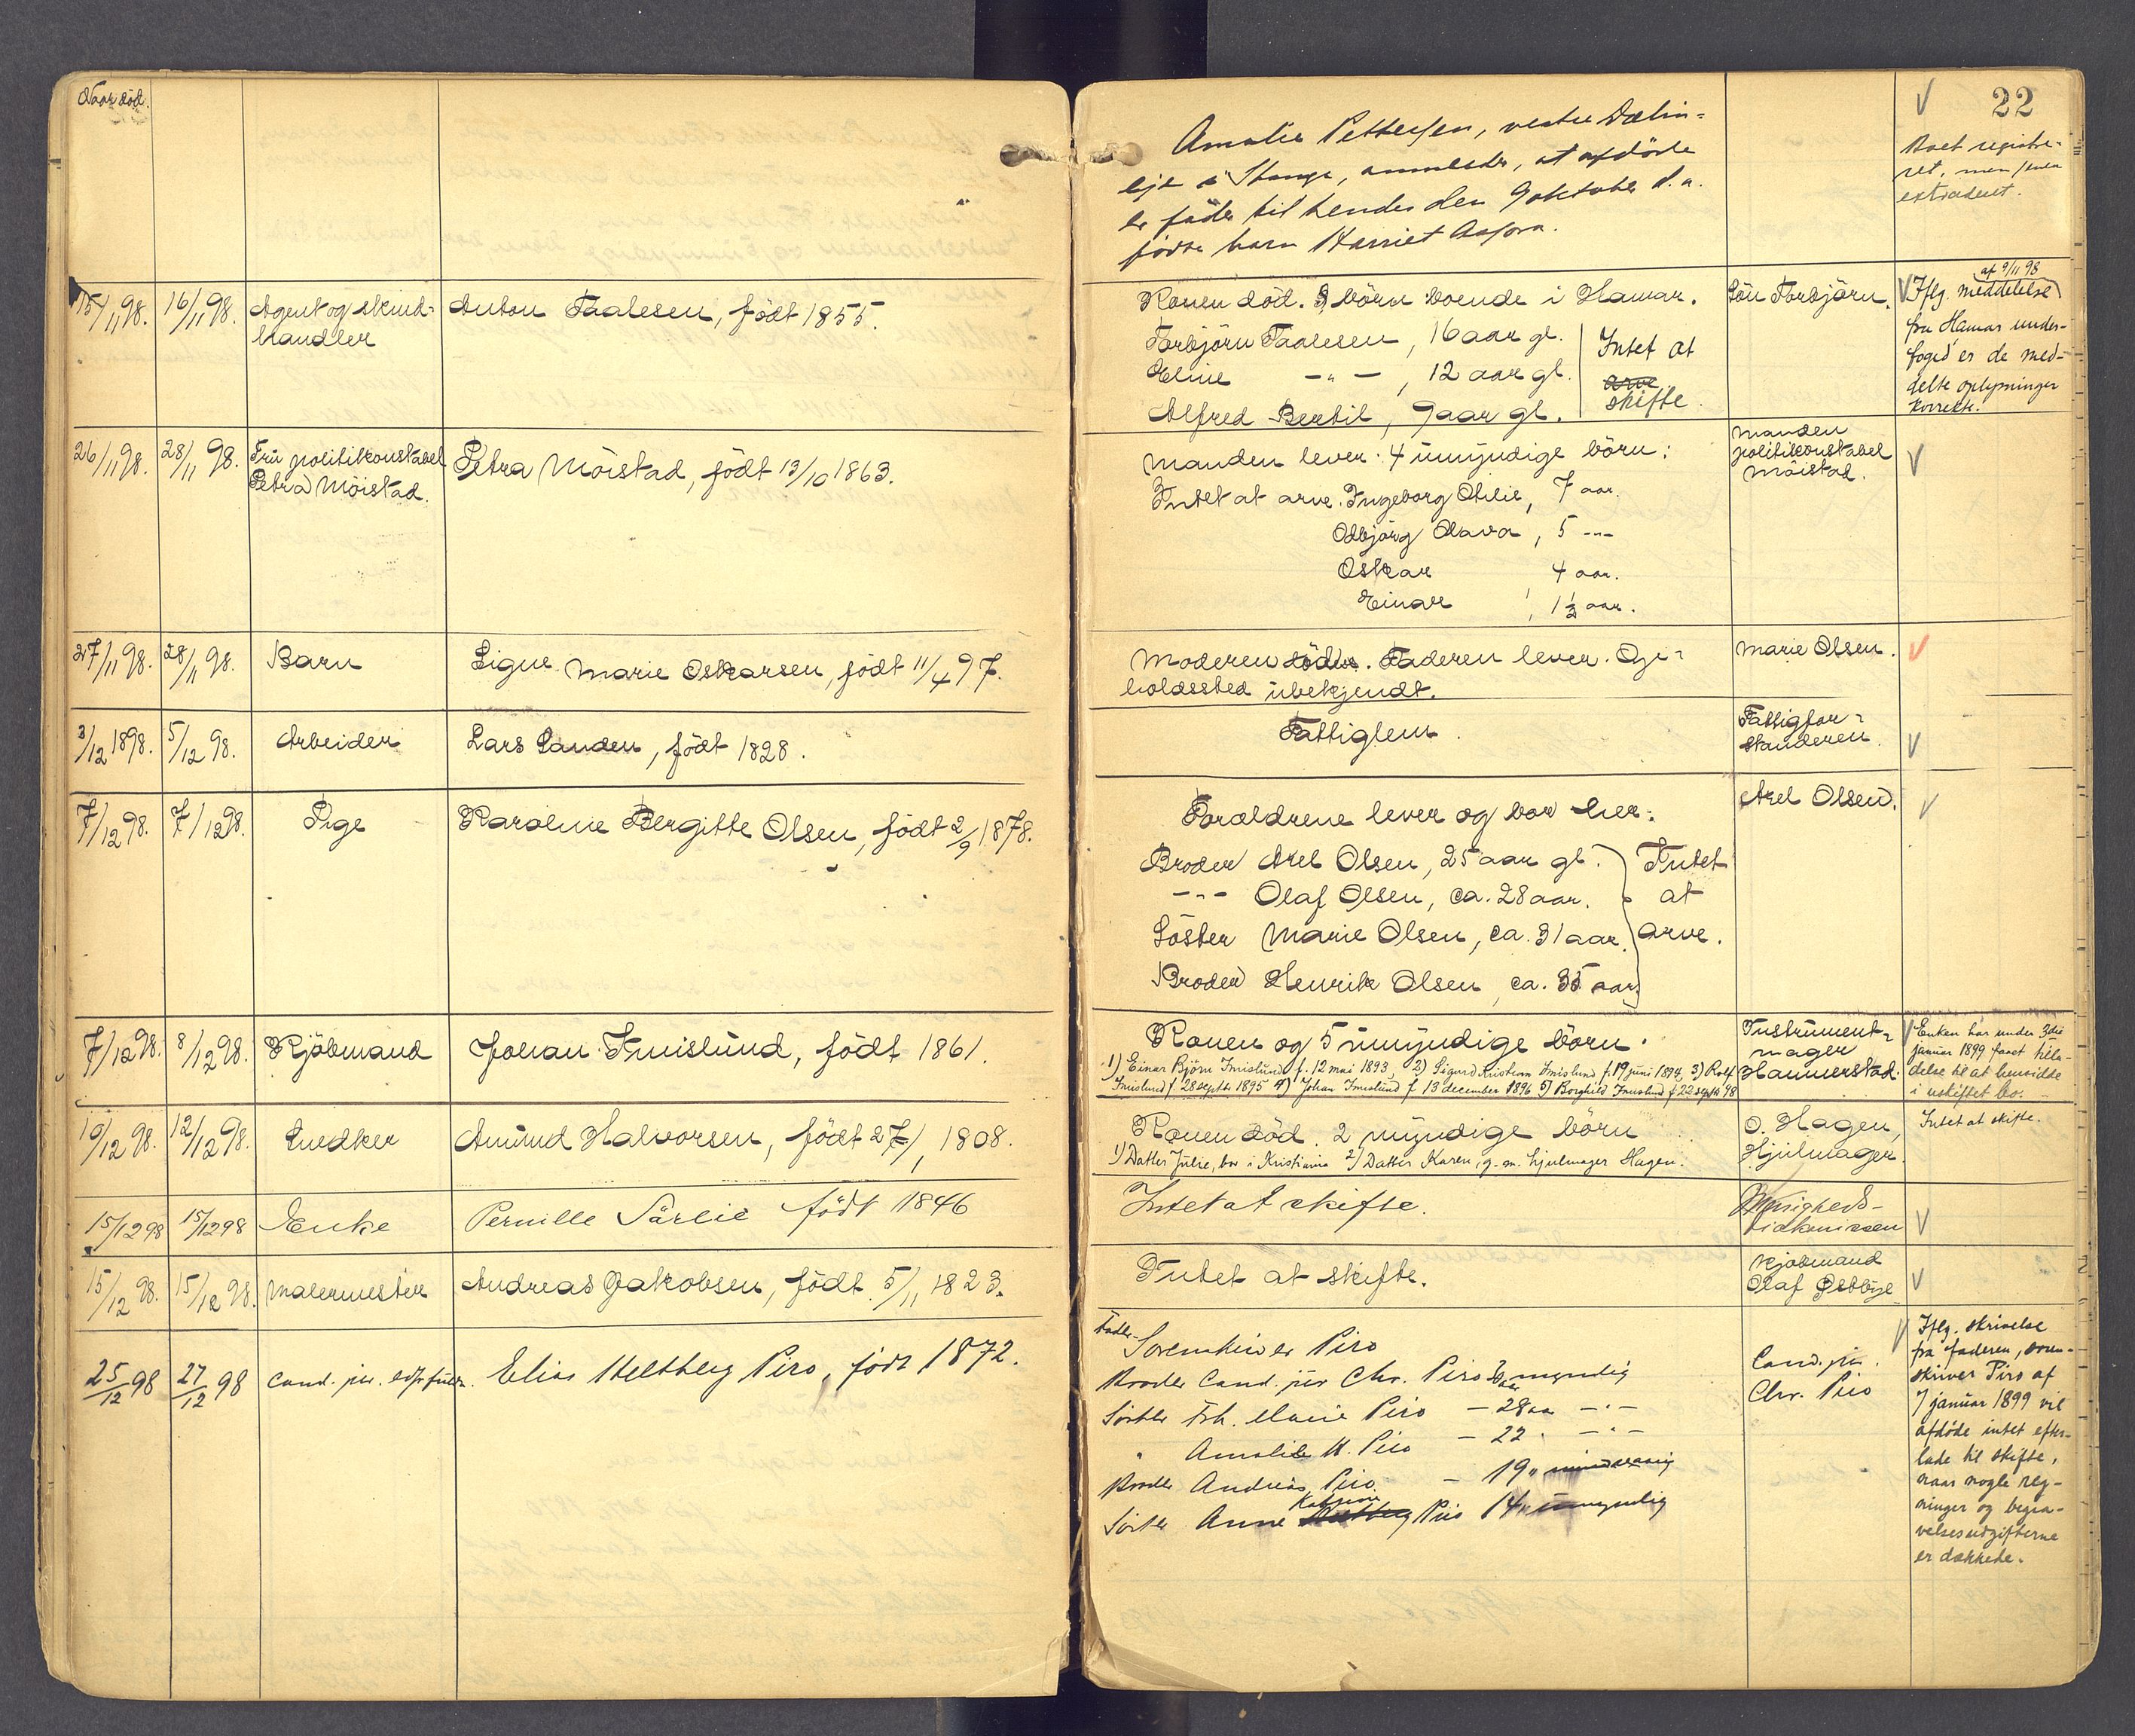 Naar död.
22
Amalie Pettersen, vestre Dælin-
eje i Stange, anmelder, at afdöde
er fader til hendes den 9 oktober d. a.
födte barn Harriet
Boet registre-
ret, men
extraderet.
15/11 98. 16/11 98. Agent og skind-
handler
Anton Taalesen, födt 1855.
Konen död. 3 börn boende i Hamar.
Torbjörn Taalesen, 16 aar gl.
Eline -"- , 12 aar gl.
Alfred Bertil, 9 aar gl.
Intet at
arve
skifte.
Sön Torbjörn.
Iflg. meddelelse
af 9/11 98
fra Hamar under-
foged er de med-
delte oplysninger
korrekt.
26/11 98. 28/11 98. Fru politikonstabel
Petra Möistad.
Petra Möistad, födt 13/10 1863.
Manden lever. 4 umyndige börn:
Intet at arve. Ingeborg Otilie, 7 aar.
Odbjörg Olava, 5 -"-
Oskar 4 aar.
Einar , 1 1/2 aar.
Manden
politikonstabel
Möistad.
27/11 98. 28/11 98. Barn
Signe Marie Oskarsen, födt 11/4 97.
Moderen död. Faderen lever. Op-
holdssted ubekjendt.
Marie Olsen.
3/12 1898. 5/12 98. Arbeider
Lars Sanden, födt 1828.
Fattiglem.
Fattigfor-
standeren.
7/12 98. 7/12 98. Pige
Karoline Bergitte Olsen, födt 2/9 1878.
Forældrene lever og bor her.
Broder Axel Olsen, 25 aar gl.
-"- Olaf Olsen, ca. 28 aar.
Söster Marie Olsen, ca. 31 aar.
Broder Henrik Olsen, ca. 35 aar
Intet
at
arve.
Axel Olsen.
7/12 98. 8/12 98. Kjöbmand
Johan Imislund, födt 1861.
Konen og 5 umyndige börn.
1) Einar Björn Imislund f. 12 mai 1893, 2) Sigurd Kristian Imislund f. 19 juni 1894, 3) Rolf
Imislund f. 28 septbr 1895 4) Johan Imislund f. 13 december 1896 5) Borghild Imislund f. 22 septbr 98
Instrument-
mager
Hammerstad.
Enken har under 3die
januar 1899 faaet tilla-
delse til at hensidde
i uskiftet bo.
10/12 98. 12/12 98. Snedker
Amund Halvorsen, födt 27/1 1808.
Konen död. 2 myndige börn
1) Datter Julie, bor i Kristiania 2) Datter Karen, g. m. hjulmager Hagen.
O. Hagen,
Hjulmager.
Intet at skifte.
15/12 98 15/12 98 Enke
Pernille Sörlie födt 1846
Intet at skifte.
15/12 98. 15/12 98. Malermester
Andreas Jakobsen, födt 5/11 1823.
Intet at skifte.
Kjöbmand
Olaf Östbye
25/12 98 27/12 98 Cand. jur. edsv. fuldm.
Elias Heltberg Piro, födt 1872.
Fader Sorenskriver Piro
Broder Cand. jur Chr. Piro myndig
Söster Frk. Marie Piro - 28 aar -"-
" Amalie H. Piro - 22 -"-
Broder Andreas Piro - 19 " mindreaarig
Söster Anne Kathrine Piro 14 " umyndig
Cand. jur.
Chr. Piro
Iflg. skrivelse
fra faderen, soren-
skriver Piro af
7 januar 1899 vil
afdöde intet efter-
lade til skifte,
naar nogle reg-
ninger og begra-
velsesudgifterne
er dækkede.